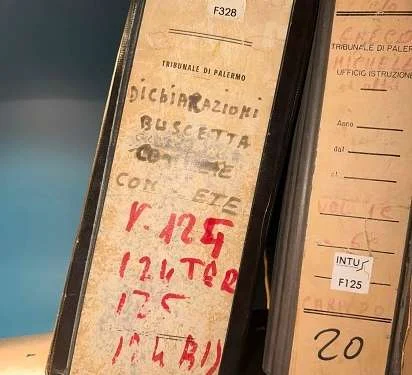 F328
TRIBUNALE DI PALERMO
DICHIARAZIONI
BUSCETTA
CON E TE
V. 124
124 TER
125
124 BIS
GRECO
TRIBUNALE DI PALER
MICHELE
UFFICIO ISTRUZIONE
Anno
dal
al
VOL
INTUS
F125
20